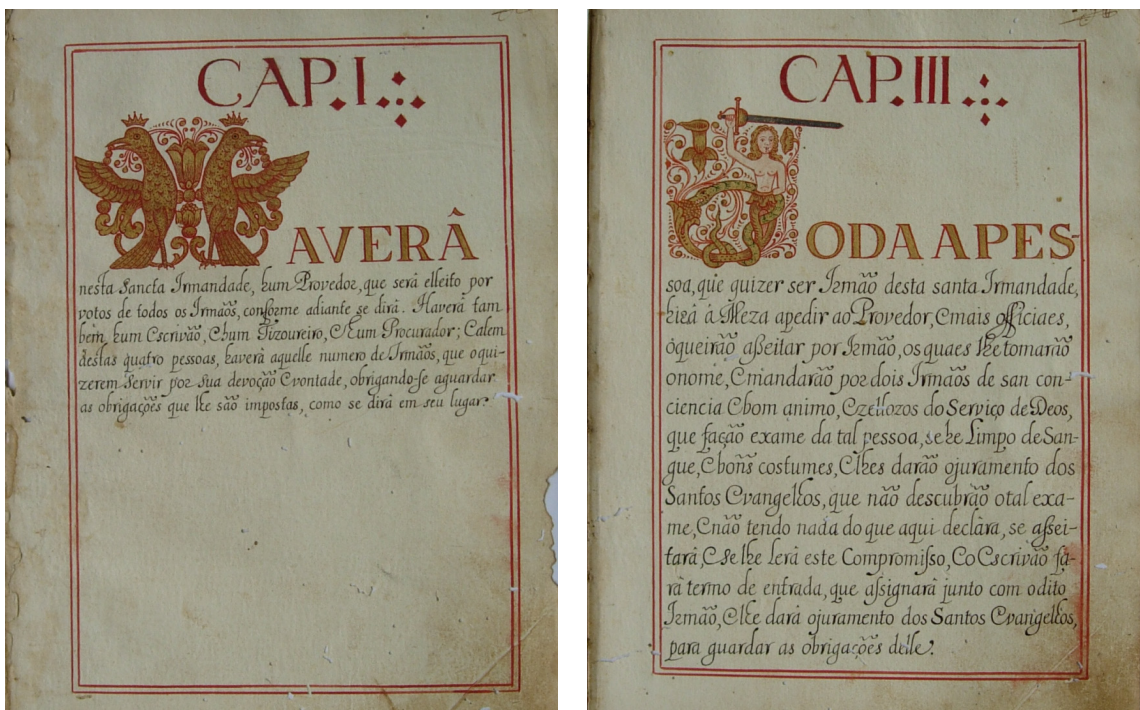 CAP. I
HAVERÂ
nesta Sancta Irmandade, hum Provedor, que serâ elleito por
votos de todos os Irmãos, conforme adiante se dirâ. Haverâ tam
bem hum Escrivão, Ehum Tizoureiro, Ehum Procurador; Ealem
destas quatro pessoas, haverâ aquelle numero de Irmãos, que oqui-
zerem servir por sua devoção Evontade, obrigando-se aguardar
as obrigações que lhe são impostas, como se dirâ em seu lugar.
CAP. III
TODA APES-
soa, que quizer ser Irmão desta santa Irmandade,
hirâ â Meza apedir ao Provedor, Emais officiaes,
ôqueirão aßeitar por Irmão, os quaes lhe tomarão
onome, Emandarão por dois Irmãos de san con-
ciencia Ebom animo, Ezellozos do Serviço de Deos,
que fação exame da tal pessoa, se he Limpo de San-
gue, Ebons costumes, Elhes darão ojuramento dos
Santos Evangelhos, que não descubrão otal exa-
me, Enão tendo nada do que aqui declâra, se aßei-
tarâ, Ese lhe lerâ este Compromiſso, Eo Escrivão fa-
râ termo de entrada, que aſsignarâ junto com odito
Irmão, Elhe darâ ojuramento dos Santos Evangelhos,
para guardar as obrigações delle.